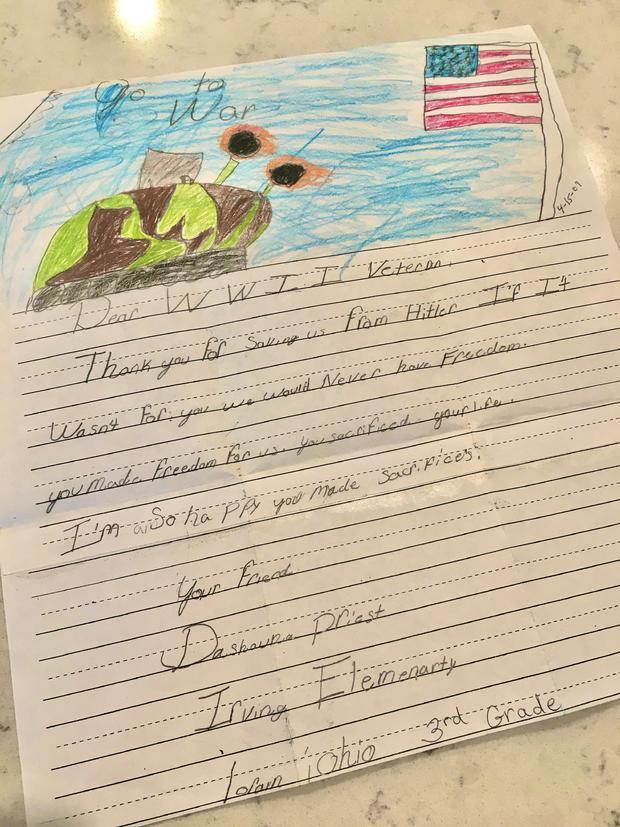 Go to
War
4-15-09
Dear WWII Veteran.
Thank you for saving us from Hitler If It
Wasn't for you we would Never have Freedom.
you made freedom for us. you sacrificed your life.
I'm so happy you made sacrifices.
Your friend
Dashauna Priest
Irving Elemenarty
lorain, Ohio 3rd Grade